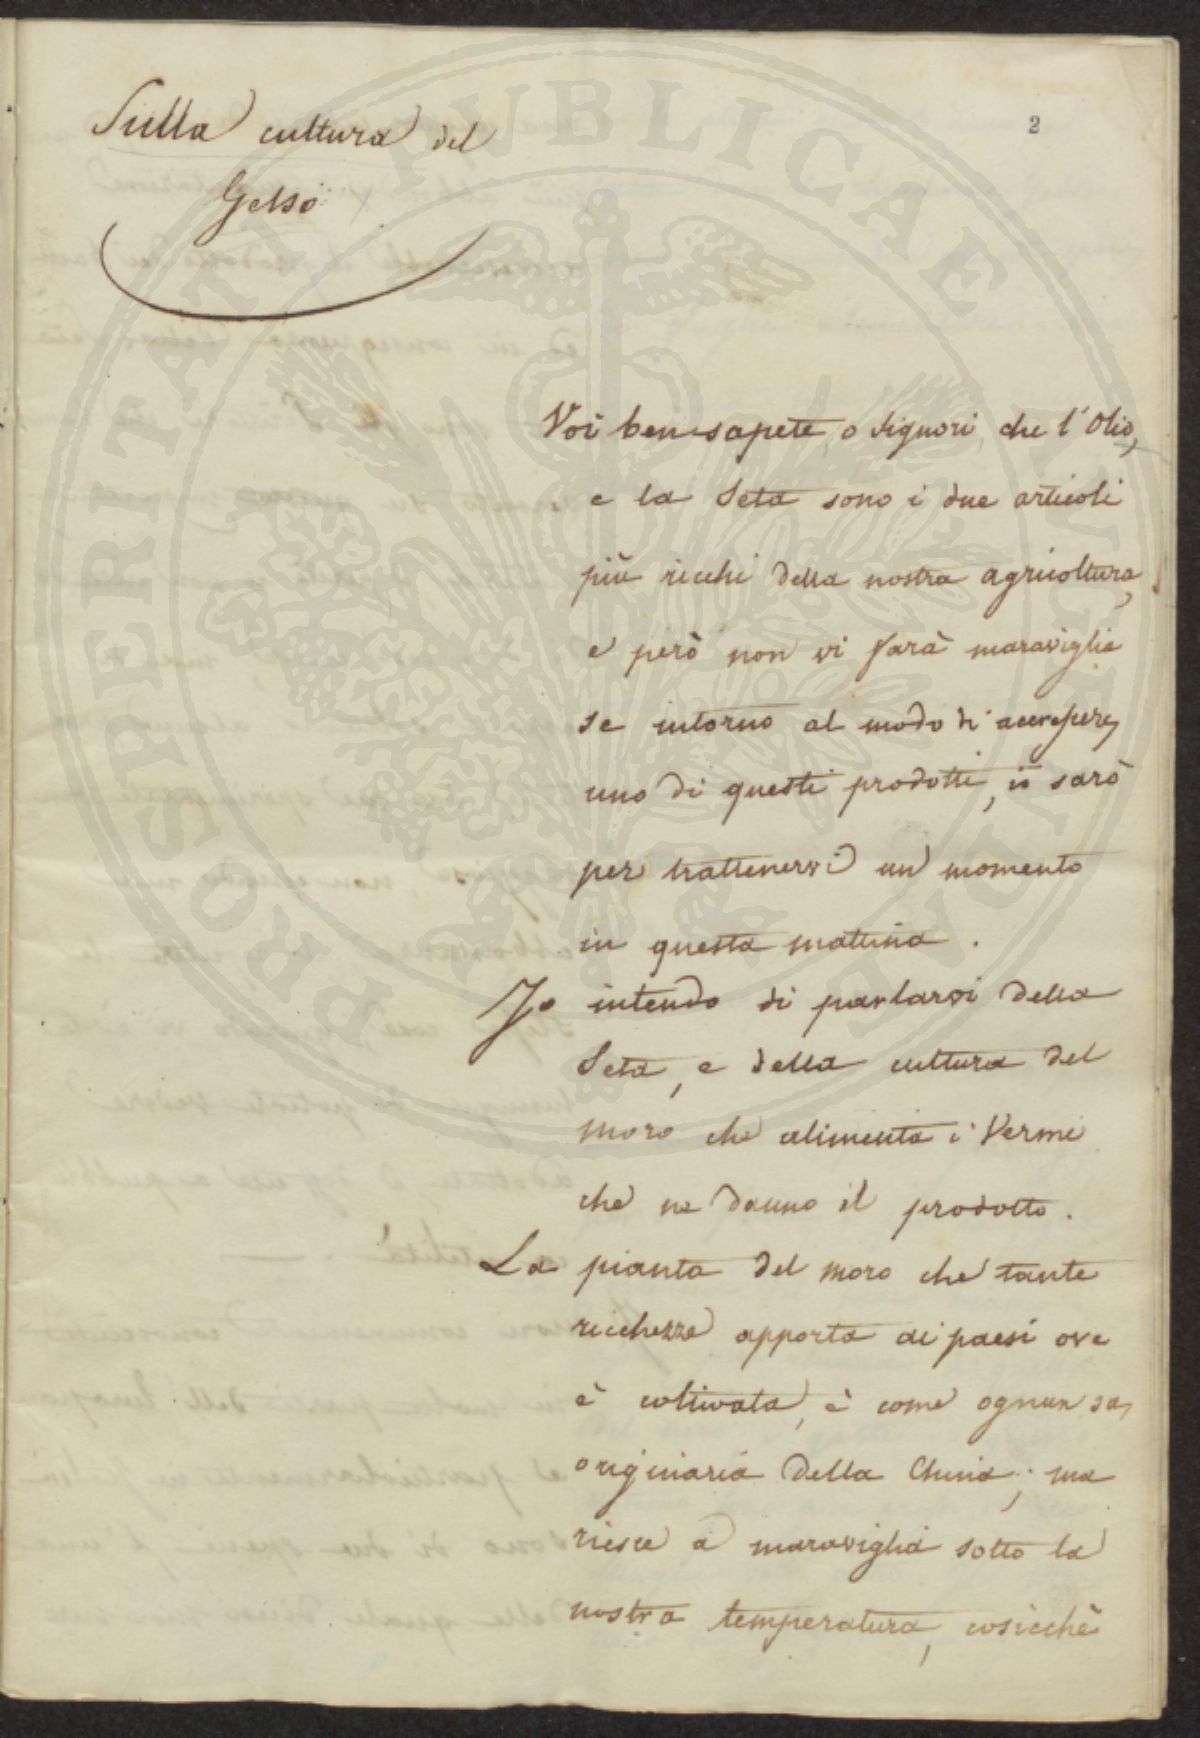 2
Sulla cultura del
Gelso
Voi ben sapete, o Signori, che l'Olio,
e la Seta sono i due articoli
più ricchi della nostra agricoltura,
e però non vi farà maraviglia
se intorno al modo di accrescere
uno di questi prodotti, io sarò
per trattenervi un momento
in questa mattina.
Io intendo di parlarvi della
Seta, e della cultura del
moro che alimenta i Vermi
che ne danno il prodotto.
La pianta del moro che tante
ricchezze apporta ai paesi ove
è coltivata, è come ognun sa,
originaria della China; ma
riesce a maraviglia sotto la
nostra temperatura, cosicchè
PROSPERITATI PUBLICAE AUGENDAE